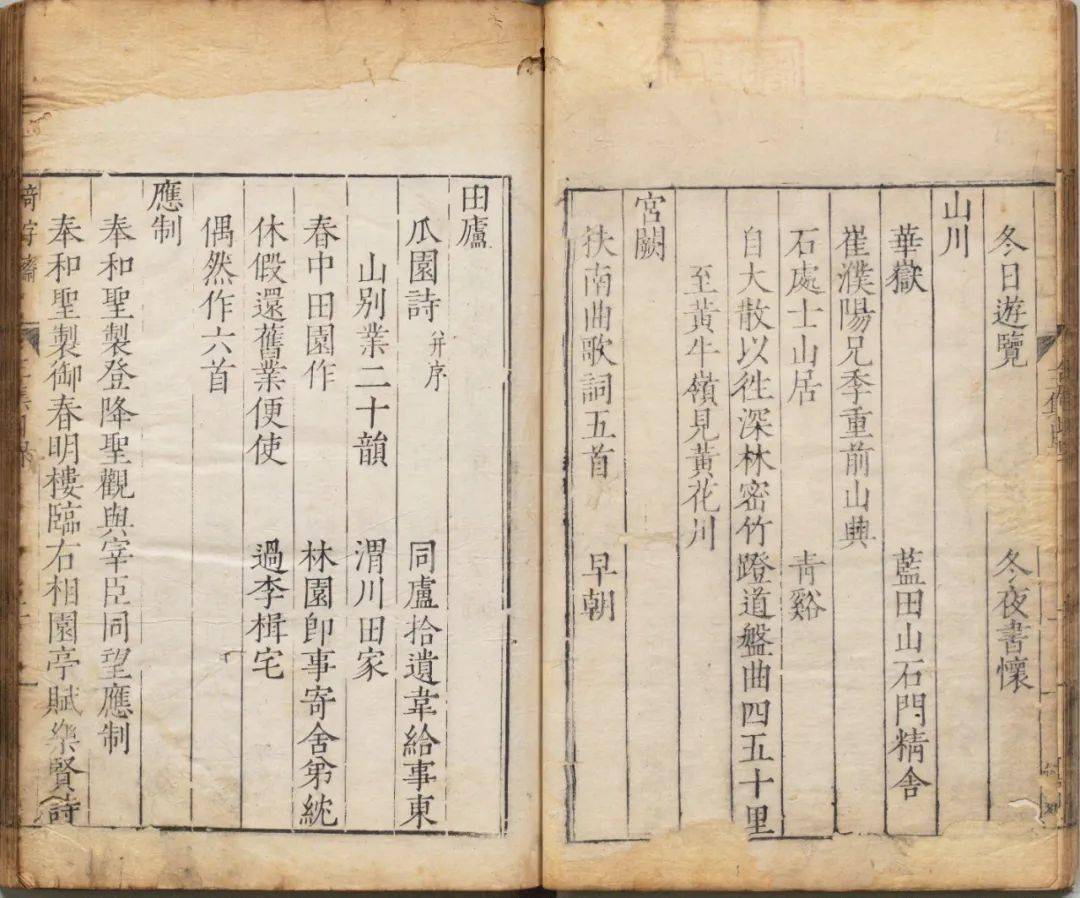 冬日遊覽 冬夜書懷
山川
華嶽 藍田山石門精舍
崔濮陽兄季重前山興
石處士山居 青谿
自大散以徃深林密竹蹬道盤曲四五十里
至黃牛嶺見黃花川
宮闕
扶南曲歌詞五首 早朝
田廬
瓜園詩 并序 同盧拾遺韋給事東
山别業二十韻 渭川田家
春中田園作 林園即事寄舍弟紞
休假還舊業便使 過李楫宅
偶然作六首
應制
奉和聖製登降聖觀與宰臣同望應制
奉和聖製御春明樓臨右相園亭賦樂賢詩